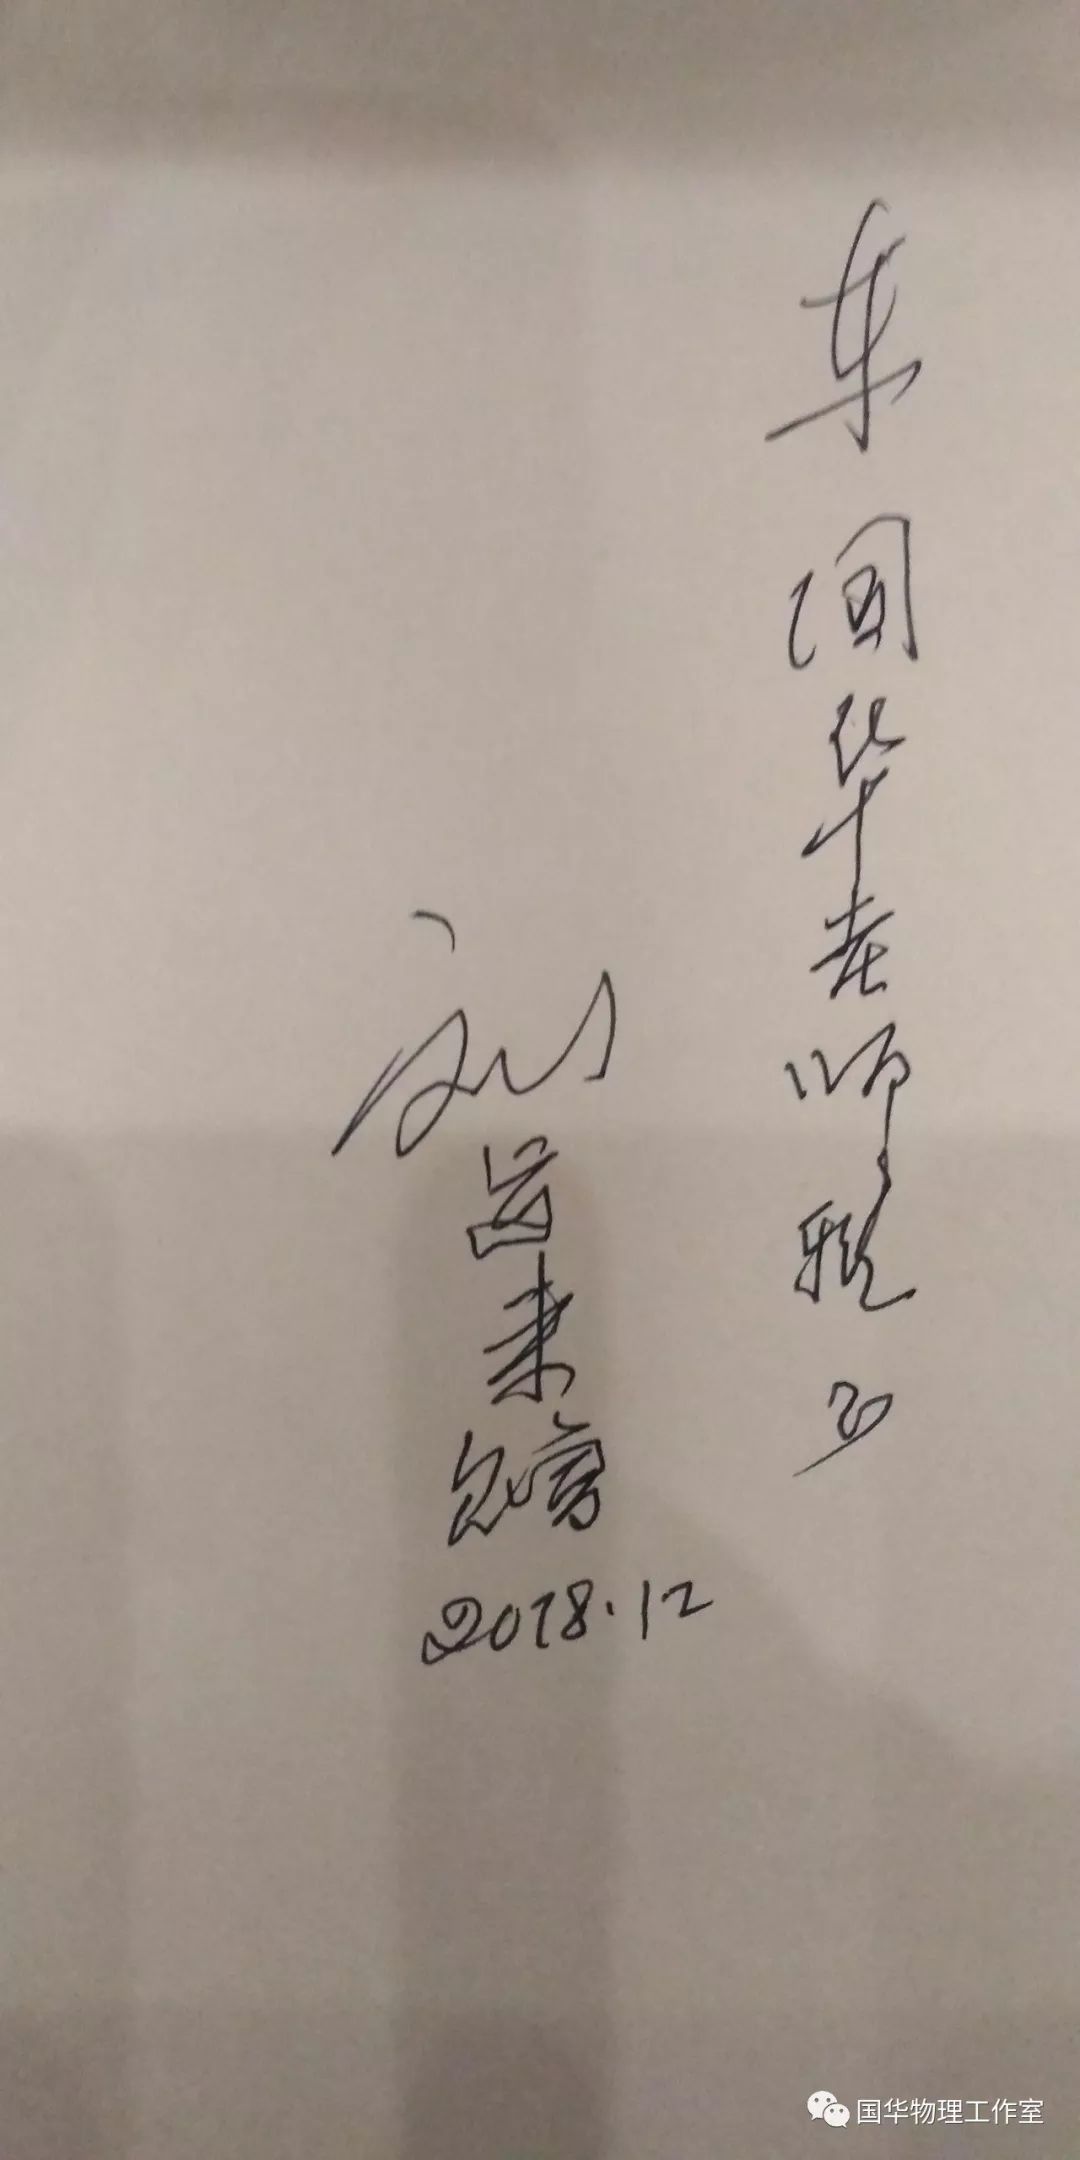 车国华老师雅正
刘
敬赠
2018.12
国华物理工作室